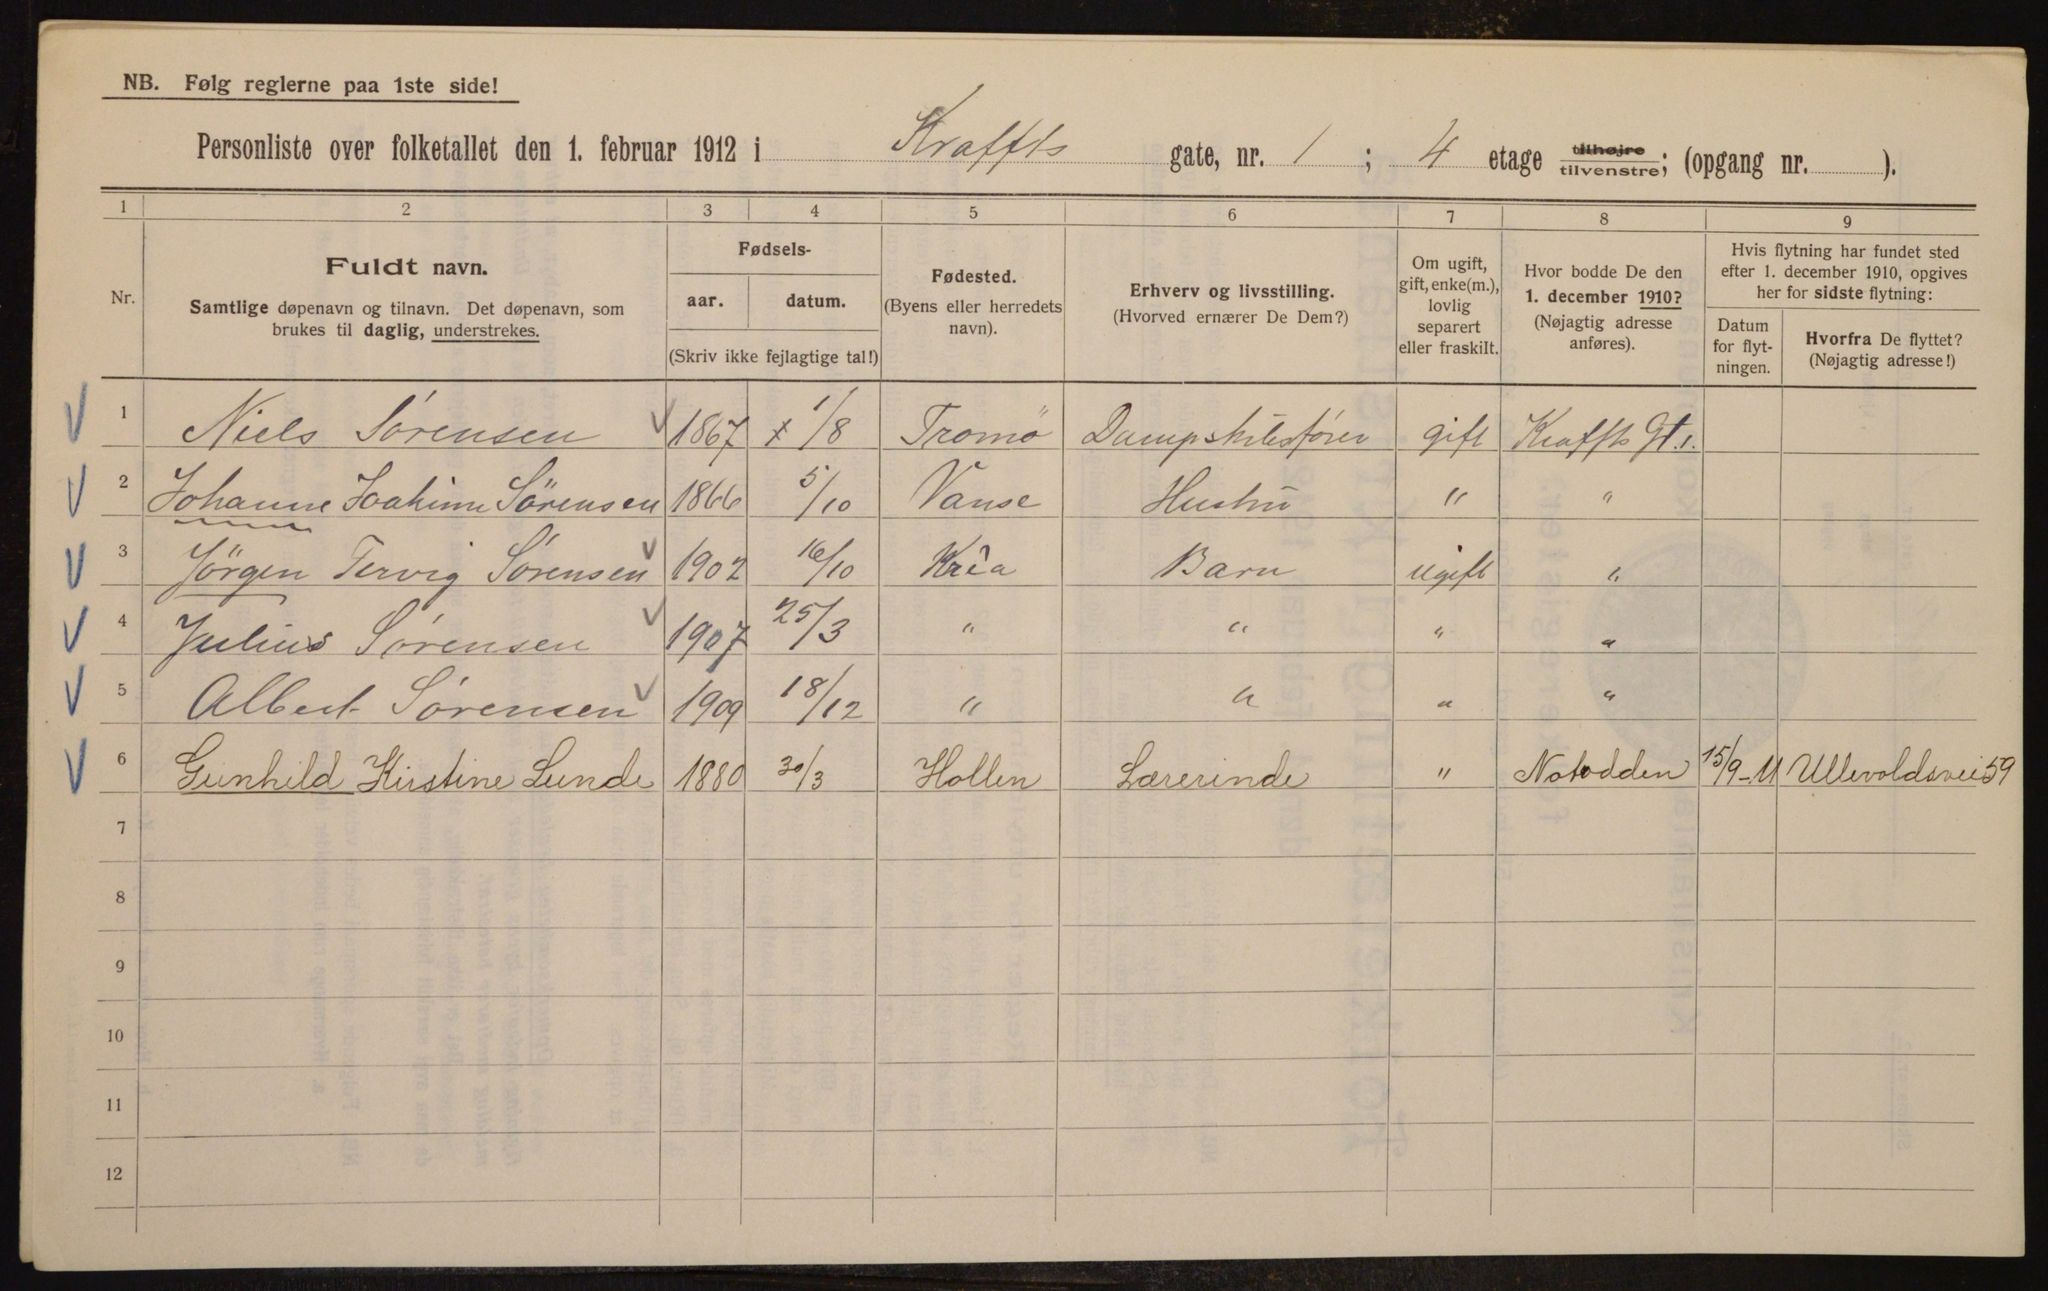 NB. Følg reglerne paa 1ste side!
Personliste over folketallet den 1. februar 1912 i Kraffts gate, nr. 1 ; 4 etage tilhøjre tilvenstre; (opgang nr. ).
1 2 3 4 5 6 7 8 9
Nr.
Fuldt navn.
Samtlige døpenavn og tilnavn. Det døpenavn, som
brukes til daglig, understrekes.
Fødsels-
aar. datum.
(Skriv ikke fejlagtige tal!)
Fødested.
(Byens eller herredets
navn).
Erhverv og livsstilling.
(Hvorved ernærer De Dem?)
Om ugift,
gift, enke(m.),
lovlig
separert
eller fraskilt.
Hvor bodde De den
1. december 1910?
(Nøjagtig adresse
anføres).
Hvis flytning har fundet sted
efter 1. december 1910, opgives
her for sidste flytning:
Datum
for flyt-
ningen.
Hvorfra De flyttet?
(Nøjagtig adresse!)
1 Niels Sörensen 1867 1/8 Tromö Dampskibsfører gift Kraffts Gt. 1.
2 Johanne Joakime Sörensen 1866 5/10 Vanse Hustru " "
3 Jörgen Tervig Sörensen 1902 16/10 Kria Barn ugift "
4 Julius Sörensen 1907 25/3 " " " "
5 Albert Sörensen 1909 18/12 " " " "
6 Gunhild Kirstine Lunde 1880 30/3 Hollen Lærerinde " Notodden 15/9-11 Ullevoldsvei 59
7
8
9
10
11
12